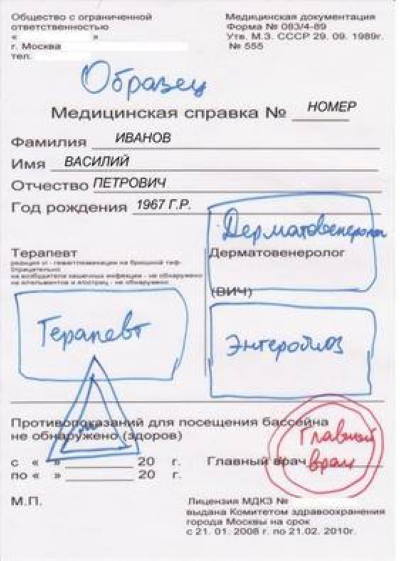 Общество с ограниченной
ответственностью
« »
г. Москва
тел.
Медицинская документация
Форма № 083/4-89
Утв. М.З. СССР 29. 09. 1989г.
№ 555
Образец
Медицинская справка № НОМЕР
Фамилия ИВАНОВ
Имя ВАСИЛИЙ
Отчество ПЕТРОВИЧ
Год рождения 1967 Г.Р.
Дерматовенеролог
Терапевт
реакция vi - гемагглютинации на брюшной тиф-
отрицательно
на возбудителя кишечных инфекции - не обнаружено
не обнаружено
Дерматовенеролог
(ВИЧ)
Терапевт
Энтеробиоз
Противопоказаний для посещения бассейна
не обнаружено (здоров)
с « » 20 г.
по « » 20 г.
Главный врач
Главный
врач
М.П.
Лицензия МДКЗ №
выдана Комитетом здравоохранения
города Москвы на срок
с 21. 01. 2008 г. по 21.02. 2010г.